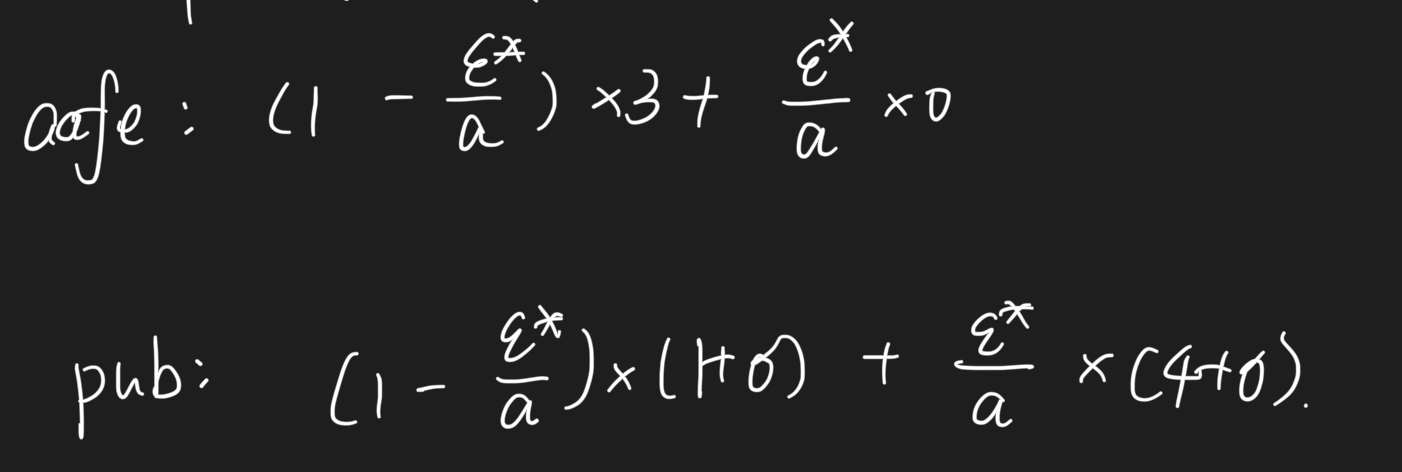 aafe : (1 - ε*/a) ×3 + ε*/a ×0
pub: (1 - ε*/a) × (1+0) + ε*/a × (4+0).